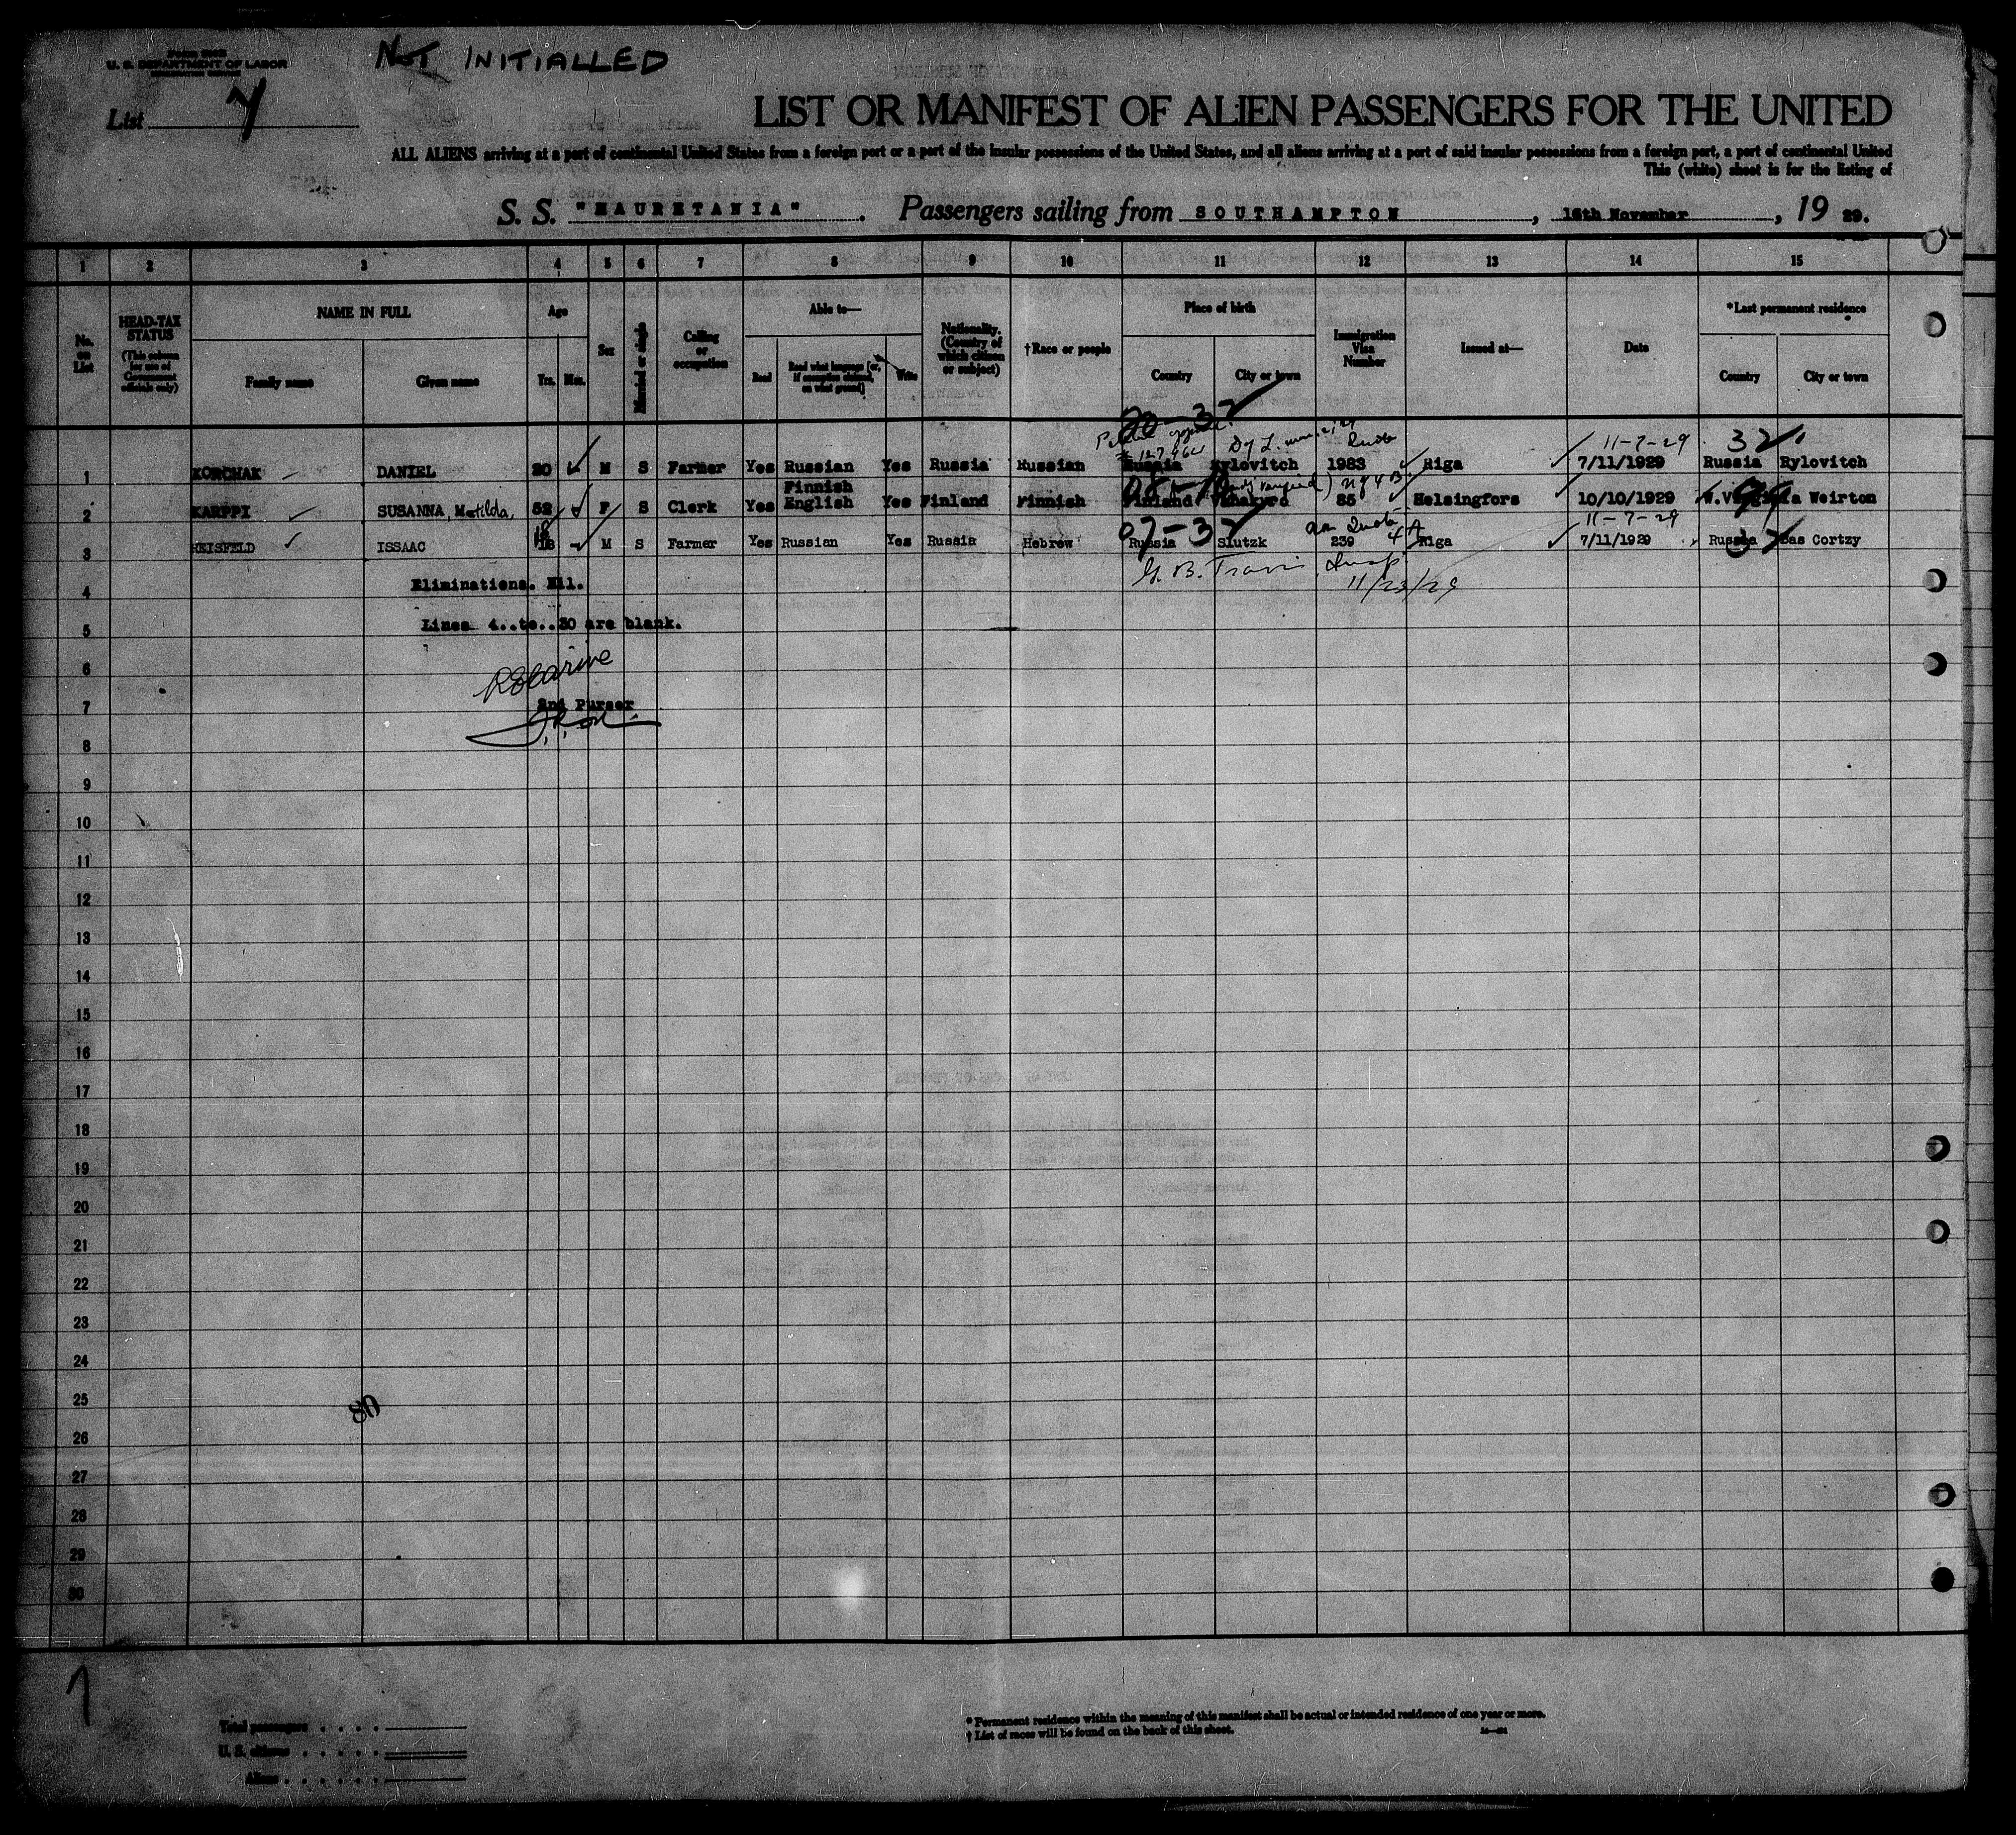 U. S. DEPARTMENT OF LABOR
NOT INITIALLED
List 7
LIST OR MANIFEST OF ALIEN PASSENGERS FOR THE UNITED
ALL ALIENS arriving at a port of continental United States from a foreign port or a port of the insular possessions of the United States, and all aliens arriving at a port of said insular possessions from a foreign port, a port of continental United
This (white) sheet is for the listing of
S. S. "MAURETANIA". Passengers sailing from SOUTHAMPTON, 16th November, 19 29.
1 2 3 4 5 6 7 8 9 10 11 12 13 14 15
No. on List
HEAD-TAX STATUS (This column for use of Government officials only)
NAME IN FULL
Family name Given name
Age
Yrs. Mos.
Sex
Married or single
Calling or occupation
Able to—
Read Read what language [or, if exemption claimed, on what ground] Write
Nationality. (Country of which citizen or subject)
†Race or people
Place of birth
Country City or town
Immigration Visa Number
Issued at—
Date
*Last permanent residence
Country City or town
20-32
127964
Quota
11-7-29 32
1 KORCHAK DANIEL 20 M S Farmer Yes Russian Yes Russia Russian Russia Rylovitch 1983 Riga 7/11/1929 Russia Rylovitch
Finnish
2 KARPPI SUSANNA, Matilda, 52 F S Clerk Yes English Yes Finland Finnish Finland 85 Helsingfors 10/10/1929 W.Virginia Weirton
18 07-32 Quota 11-7-29
3 REISFELD ISSAAC 18 M S Farmer Yes Russian Yes Russia Hebrew Russia Slutzk 239 Riga 7/11/1929 Russia Sas Cortzy
G. B. Travis, Insp.
11/23/29
4 Eliminations. Nil.
5 Lines 4..to..30 are blank.
6
7 2nd Purser
8
9
10
11
12
13
14
15
16
17
18
19
20
21
22
23
24
25
80
26
27
28
29
30
Total passengers
U. S. citizens
Aliens
* Permanent residence within the meaning of this manifest shall be actual or intended residence of one year or more.
† List of races will be found on the back of this sheet.